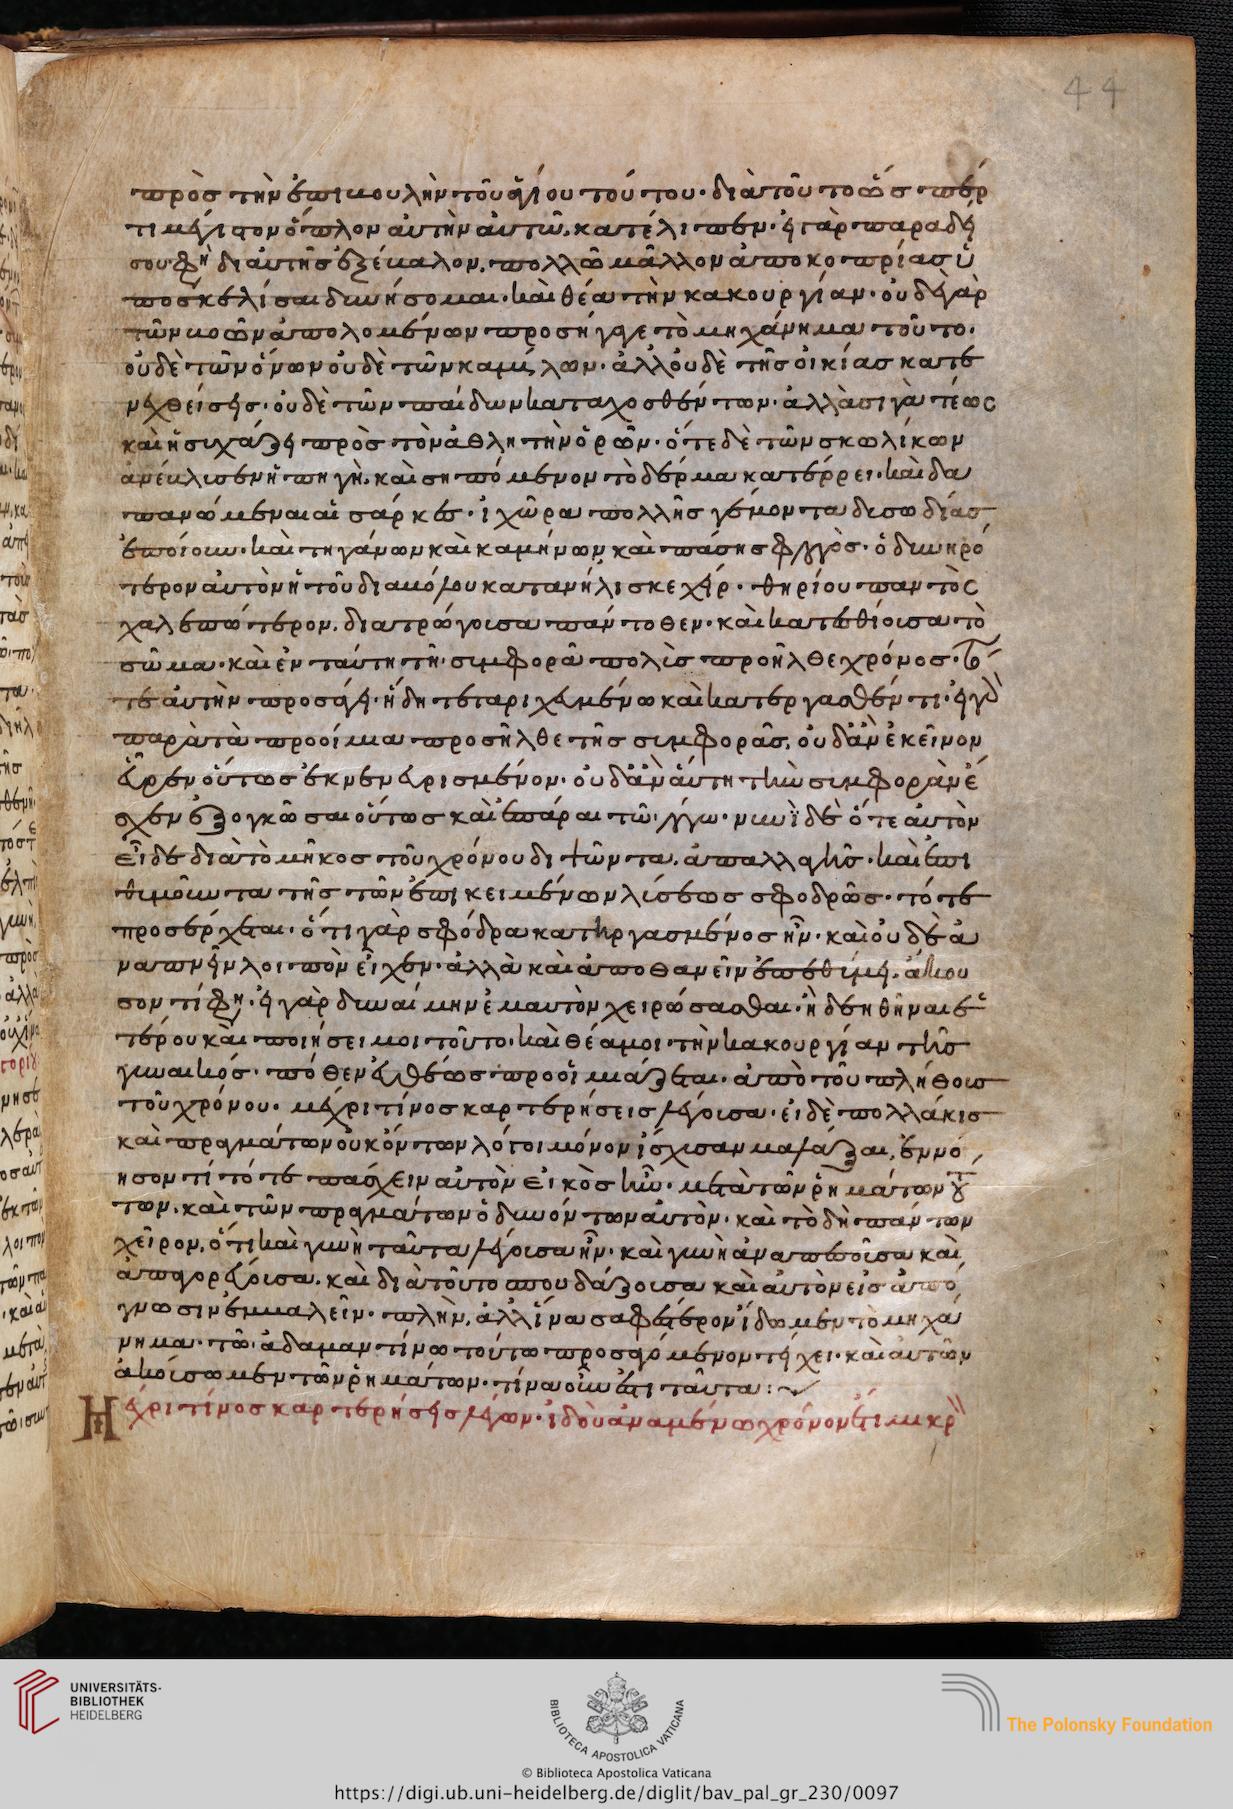 44
πρὸς τὴν ἐπικουλὴν τοῦ ἡλίου τούτου· διὰ τοῦτο ὥσπερ
τι μέγιστον ὅπλον αὐτὴν αὐτῶ, κατέλιπεν· εἰ γὰρ παραδεί
σου φη δι αὐτῆς ἐξέκαλον, πολλῶ μᾶλλον ἀπὸ κοπρίας ὑ
ποσκελίσαι δυνήσομαι· καὶ θέα τὴν κακουργίαν· οὐδὲ γὰρ
τῶν βοῶν ἀπολομένων προσήγαγε τὸ μηχάνημα τοῦτο·
οὐδὲ τῶν ὄνων οὐδὲ τῶν καμήλων· ἀλλ οὐδὲ τῆς οἰκίας κατε
νεχθείσης· οὐδὲ τῶν παίδων καταχοσθέντων· ἀλλὰ σιγᾶ τέως
καὶ ἡσιχάζει πρὸς τὸν ἀθλητὴν ὁρῶν· ὅτε δὲ τῶν σκωλίκων
ἀνέκλισεν ἡ πηγὴ, καὶ σηπόμενον τὸ δέρμα κατέρρει· καὶ δα
πανώμεναι αἱ σάρκες· ἰχῶρα πολλῆς γέμοντα δυσωδίας
ἐποίουν· καὶ τηγάνων καὶ καμήνων καὶ πάσης φλογὸς· ὀδυνηρό
τερον αὐτὸν ἡ τοῦ διαβόλου κατανήλισκε χείρ· θηρίου παντὸς
χαλεπώτερον, διατρώγουσα πάντοθεν· καὶ κατεσθίουσα τὸ
σῶμα· καὶ ἐν ταύτη τῆ συμφορᾶ πολὶς προῆλθε χρόνος· τό
τε αὐτὴν προσάγει· ἤδη τεταριχευμένω καὶ κατεργασθέντι· εἰ γὰρ
παρὰ τὰ προοίμια προσῆλθε τῆς συμφορᾶς, οὐδ ἂν ἐκεῖνον
εὗρεν οὕτως ἐκνενευρισμένον· οὐδ ἂν αὕτη τὴν συμφορὰν ἔ
σχεν ἐξογκῶσαι οὕτως καὶ ἐπάραι τῶ λόγω· νυνὶ δὲ ὅτε αὐτὸν
εἶδε διὰ τὸ μῆκος τοῦ χρόνου διψῶντα, ἀπαλλαγῆς· καὶ ἐπι
θυμοῦντα τῆς τῶν ἐπικειμένων λύσεως σφοδρῶς· τότε
προσέρχεται· ὅτι γὰρ σφόδρα κατηργασμένος ἦν· καὶ οὐδὲ ἀ
ναπνεῖν λοιπὸν εἶχεν· ἀλλὰ καὶ ἀποθανεῖν ἐπεθύμει, ἄκου
σον τί φη· εἰ γὰρ δυναίμην ἐμαυτὸν χειρώσασθαι· ἢ δεηθῆναι ἑ
τέρου καὶ ποιήσει μοι τοῦτο· καὶ θέα μοι τὴν κακουργίαν τῆς
γυναικός· πόθεν εὐθέως προοιμιάζεται· ἀπὸ τοῦ πλήθους
τοῦ χρόνου· μέχρι τίνος καρτερήσεις λέγουσα· εἰ δὲ πολλάκις
καὶ πραγμάτων οὐκ ὄντων λόγοι μόνον ἴσχυσαν μαλάξαι, ἐννό
ησον τί τότε πάσχειν αὐτὸν εἰκὸς ἦν· μετὰ τῶν ῥημάτων τού
των, καὶ τῶν πραγμάτων ὀδυνόντων αὐτὸν· καὶ τὸ δὴ πάντων
χεῖρον, ὅτι καὶ γυνὴ ταῦτα λέγουσα ἦν· καὶ γυνὴ ἀναπεσοῦσα καὶ
ἀπαγορεύουσα, καὶ διὰ τοῦτο σπουδάζουσα καὶ αὐτὸν εἰς ἀπό
γνωσιν ἐμβαλεῖν· πλὴν, ἀλλ ἵνα σαφέστερον ἴδωμεν τὸ μηχά
νημα· τῶ ἀδαμαντίνω τούτω προσαγόμενον τείχει· καὶ αὐτῶν
ἀκούσωμεν τῶν ῥημάτων· τίνα οὖν ἐστι ταῦτα:
Μέχρι τίνος καρτερήσεις λέγων· ἰδοὺ ἀναμένω χρόνον ἔτι μικρὸν
UNIVERSITÄTS-
BIBLIOTHEK
HEIDELBERG
BIBLIOTECA APOSTOLICA VATICANA
The Polonsky Foundation
© Biblioteca Apostolica Vaticana
https://digi.ub.uni-heidelberg.de/diglit/bav_pal_gr_230/0097